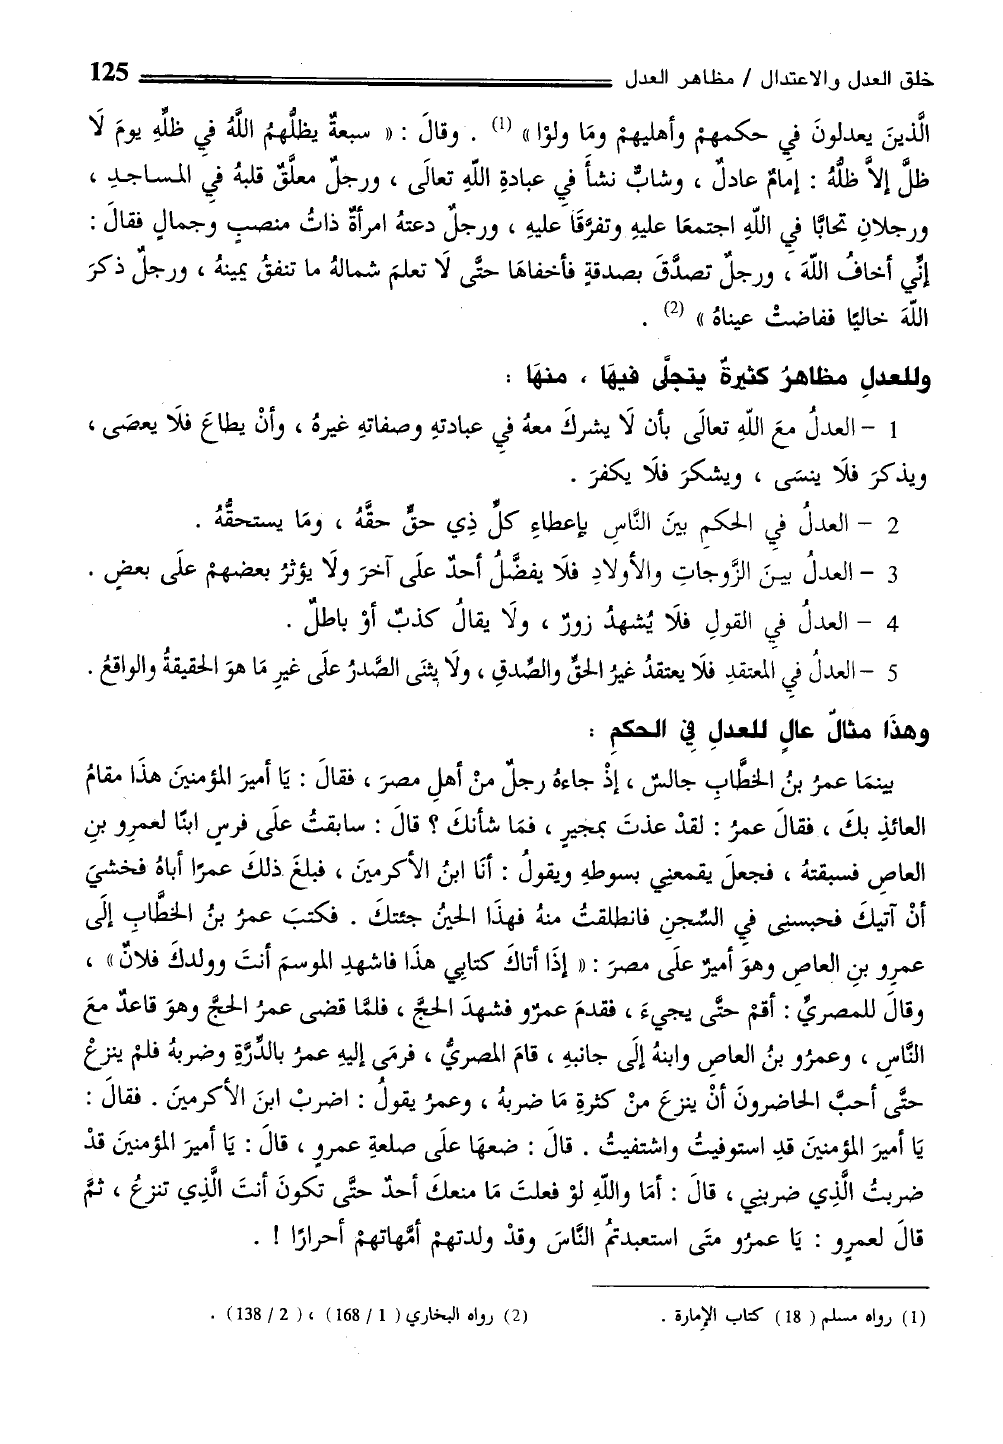 خلق العدل والاعتدال / مظاهر العدل 125
الَّذينَ يعدلونَ في حكمهمْ وأهليهمْ ومَا ولوْا » (1) . وقالَ : « سبعةٌ يظلُّهمُ اللَّهُ في ظلِّهِ يومَ لَا
ظلَّ إلاَّ ظلُّهُ : إمامٌ عادلٌ ، وشابٌّ نشأَ في عبادةِ اللّهِ تعالَى ، ورجلٌ معلَّقٌ قلبهُ في المساجدِ ،
ورجلانِ تحابَّا في اللّهِ اجتمعَا عليهِ وتفرَّقَا عليهِ ، ورجلٌ دعتهُ امرأةٌ ذاتُ منصبٍ وجمالٍ فقالَ :
إنِّي أخافُ اللّهَ ، ورجلٌ تصدَّقَ بصدقةٍ فأخفاهَا حتَّى لَا تعلمَ شمالهُ ما تنفقُ يمينهُ ، ورجلٌ ذكرَ
اللّهَ خاليًا ففاضتْ عيناهُ » (2) .
وللعدلِ مظاهرُ كثيرةٌ يتجلَّى فيهَا ، منهَا :
1 - العدلُ معَ اللّهِ تعالَى بأن لَا يشركَ معهُ في عبادتهِ وصفاتهِ غيرهُ ، وأنْ يطاعَ فلَا يعصَى ،
ويذكرَ فلَا ينسَى ، ويشكرَ فلَا يكفرَ .
2 - العدلُ في الحكمِ بينَ النَّاسِ بإعطاءِ كلِّ ذِي حقٍّ حقَّهُ ، ومَا يستحقُّهُ .
3 - العدلُ بينَ الزَّوجاتِ والأولادِ فلَا يفضَّلُ أحدٌ علَى آخرَ ولَا يؤثرُ بعضهمْ علَى بعضٍ .
4 - العدلُ في القولِ فلَا يُشهدُ زورٌ ، ولَا يقالُ كذبٌ أوْ باطلٌ .
5 - العدلُ في المعتقدِ فلَا يعتقدُ غيرُ الحقِّ والصِّدقِ ، ولَا يثنَى الصَّدرُ علَى غيرِ مَا هوَ الحقيقةُ والواقعُ .
وهذَا مثالٌ عالٍ للعدلِ في الحكمِ :
بينمَا عمرُ بنُ الخطَّابِ جالسٌ ، إذْ جاءهُ رجلٌ منْ أهلِ مصرَ ، فقالَ : يَا أميرَ المؤمنينَ هذَا مقامُ
العائذِ بكَ ، فقالَ عمرُ : لقدْ عذتَ بمجيرٍ ، فمَا شأنكَ ؟ قالَ : سابقتُ علَى فرسٍ ابنًا لعمرِو بنِ
العاصِ فسبقتهُ ، فجعلَ يقمعنِي بسوطهِ ويقولُ : أنَا ابنُ الأكرمينَ ، فبلغَ ذلكَ عمرًا أباهُ فخشيَ
أنْ آتيكَ فحبسنِي في السِّجنِ فانطلقتُ منهُ فهذَا الحينُ جئتكَ . فكتبَ عمرُ بنُ الخطَّابِ إلَى
عمرِو بنِ العاصِ وهوَ أميرٌ علَى مصرَ : « إذَا أتاكَ كتابِي هذَا فاشهدِ الموسمَ أنتَ وولدكَ فلانٌ » ،
وقالَ للمصريِّ : أقمْ حتَّى يجيءَ ، فقدمَ عمرٌو فشهدَ الحجَّ ، فلمَّا قضى عمرُ الحجَّ وهوَ قاعدٌ معَ
النَّاسِ ، وعمرُو بنُ العاصِ وابنهُ إلَى جانبهِ ، قامَ المصريُّ ، فرمَى إليهِ عمرُ بالدِّرَّةِ وضربهُ فلمْ ينزعْ
حتَّى أحبَّ الحاضرونَ أنْ ينزعَ منْ كثرةِ مَا ضربهُ ، وعمرُ يقولُ : اضربْ ابنَ الأكرمينَ . فقالَ :
يَا أميرَ المؤمنينَ قدِ استوفيتُ واشتفيتُ . قالَ : ضعهَا علَى صلعةِ عمرٍو ، قالَ : يَا أميرَ المؤمنينَ قدْ
ضربتُ الَّذي ضربنِي ، قالَ : أمَا واللّهِ لوْ فعلتَ مَا منعكَ أحدٌ حتَّى تكونَ أنتَ الَّذي تنزعُ ، ثمَّ
قالَ لعمرٍو : يَا عمرُو متَى استعبدتمُ النَّاسَ وقدْ ولدتهمْ أمَّهاتهمْ أحرارًا ! .
(1) رواه مسلم ( 18 ) كتاب الإمارة . (2) رواه البخاري ( 1 / 168 ) ، ( 2 / 138 ) .